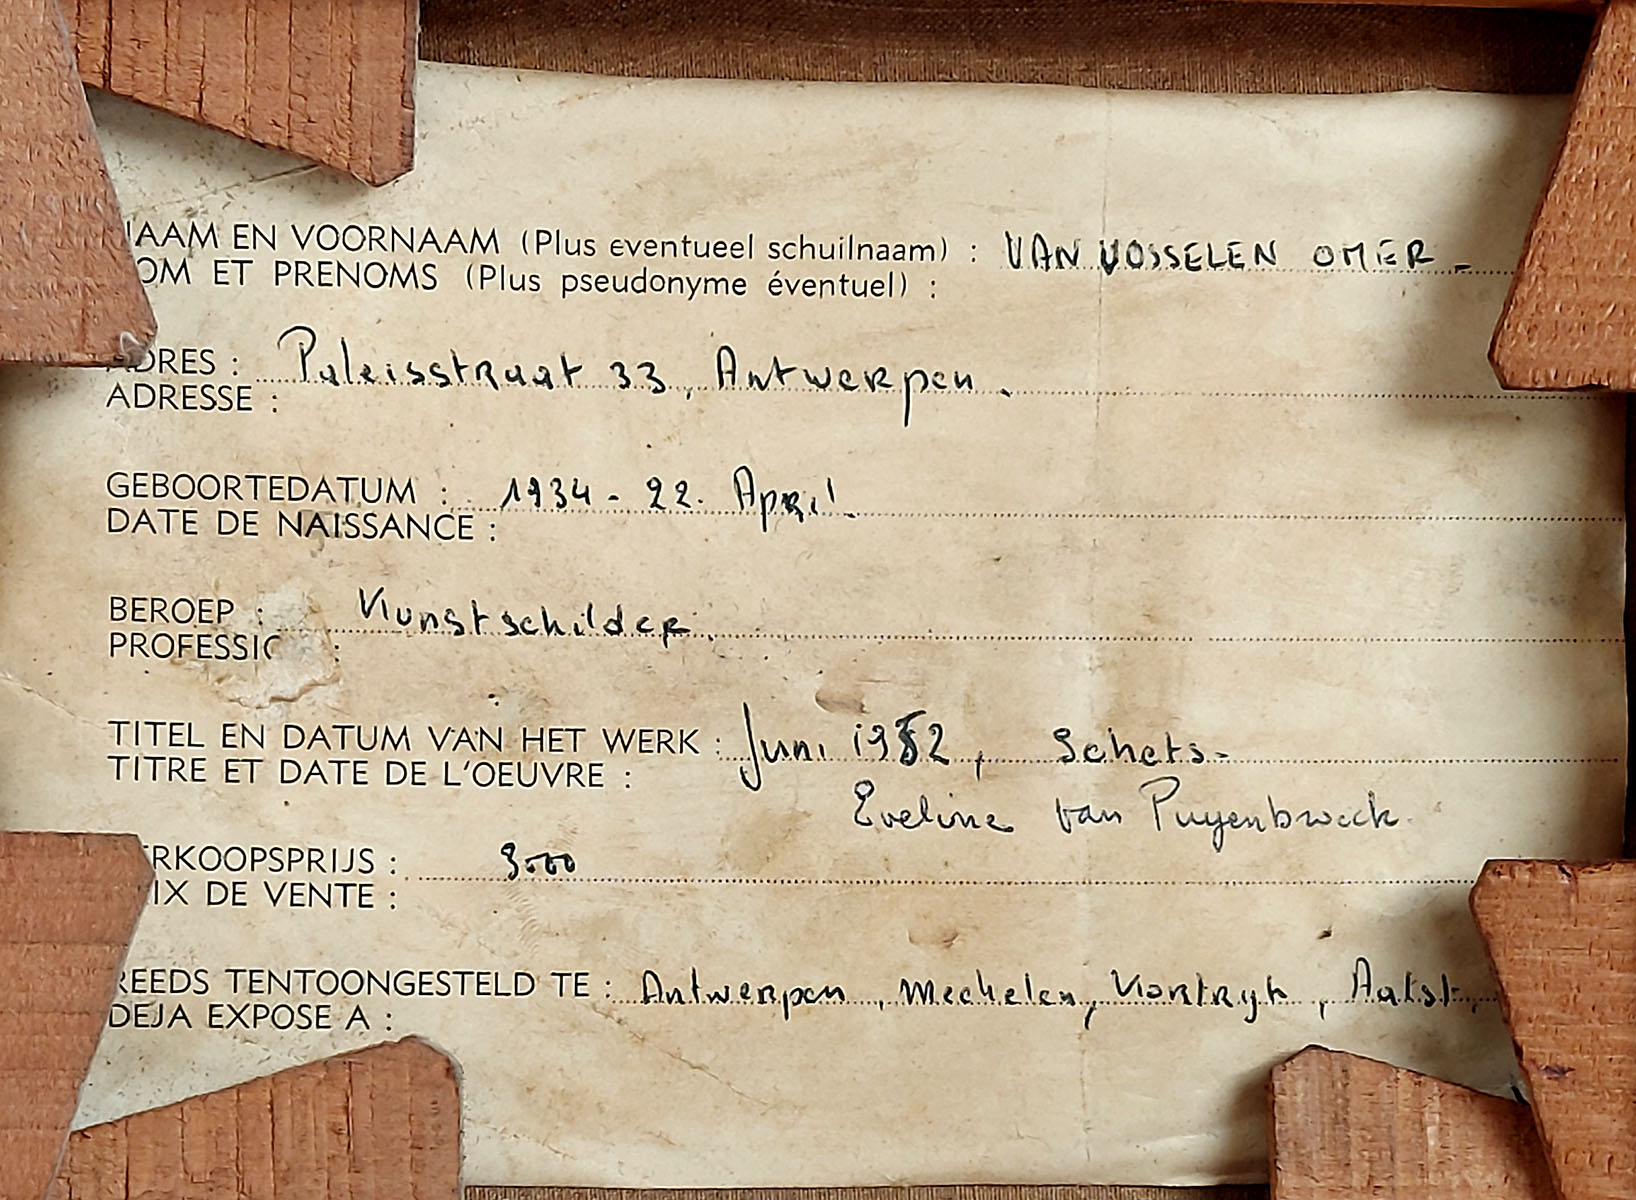 NAAM EN VOORNAAM (Plus eventueel schuilnaam) : VAN VOSSELEN OMER -
NOM ET PRENOMS (Plus pseudonyme éventuel) :
ADRES : Paleisstraat 33, Antwerpen.
ADRESSE :
GEBOORTEDATUM : 1934 - 22. April.
DATE DE NAISSANCE :
BEROEP : Kunstschilder.
PROFESSIO :
TITEL EN DATUM VAN HET WERK : Juni , Schets -
TITRE ET DATE DE L'OEUVRE :
Eveline van Puyenbroeck.
VERKOOPSPRIJS :
PRIX DE VENTE :
REEDS TENTOONGESTELD TE : Antwerpen, Mechelen, Kortryk, Aalst,
DEJA EXPOSE A :